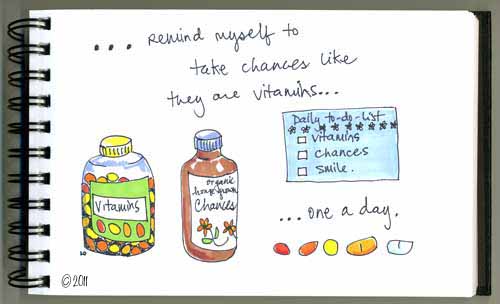 ... remind myself to
take chances like
they are vitamins...
Daily to-do-list
vitamins
chances
smile.
vitamins
organic
homegrown
Chances
...one a day.
1
© 2011